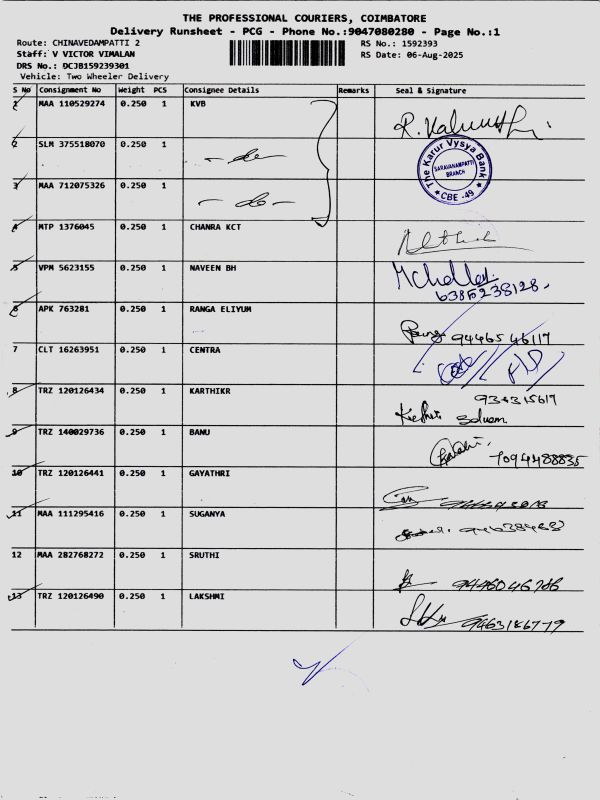 THE PROFESSIONAL COURIERS, COIMBATORE
Delivery Runsheet - PCG - Phone No.:9047080280 - Page No.:1
Route: CHINAVEDAMPATTI 2
RS No.: 1592393
Staff: V VICTOR VIMALAN
RS Date: 06-Aug-2025
DRS No.: DCJB159239301
Vehicle: Two Wheeler Delivery
S No Consignment No Weight PCS Consignee Details Remarks Seal & Signature
1 MAA 110529274 0.250 1 KVB
2 SLM 375518070 0.250 1 - do -
The Karur Vysya Bank
SARAVANAMPATTI
BRANCH
* CBE -49 *
3 MAA 712075326 0.250 1 - do -
4 MTP 1376045 0.250 1 CHANRA KCT
5 VPM 5623155 0.250 1 NAVEEN BH
6385238128
6 APK 763281 0.250 1 RANGA ELIYUM
9446546117
7 CLT 16263951 0.250 1 CENTRA
8 TRZ 120126434 0.250 1 KARTHIKR
934315617
9 TRZ 140029736 0.250 1 BANU
7094488835
10 TRZ 120126441 0.250 1 GAYATHRI
11 MAA 111295416 0.250 1 SUGANYA
12 MAA 282768272 0.250 1 SRUTHI
13 TRZ 120126490 0.250 1 LAKSHMI